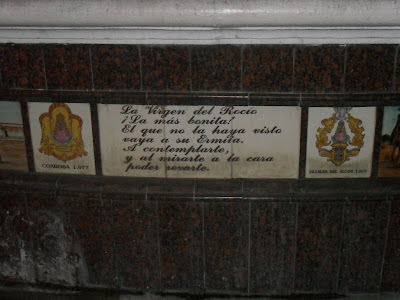 La Virgen del Rocío
¡La más bonita!
El que no la haya visto
vaya a su Ermita.
A contemplarte,
y al mirarte a la cara
poder rezarte.
CORDOBA 1.977